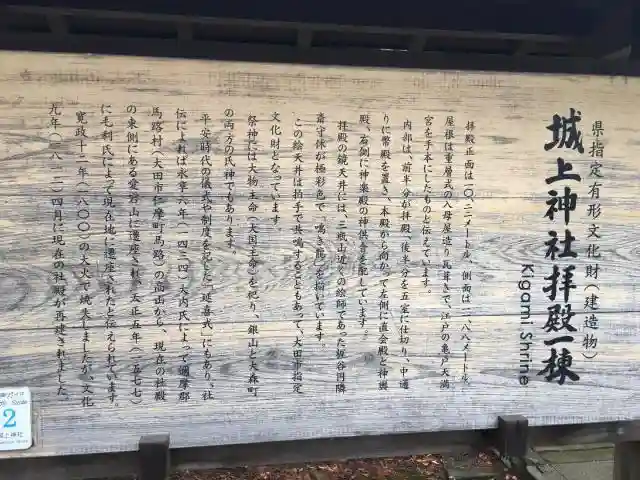 県指定有形文化財(建造物)
城上神社拝殿一棟
Kigami Shrine
拝殿正面は一〇、二メートル、側面は一一、八八メートル、
屋根は重層式の入母屋造り瓦葺きで、江戸の亀戸天満
宮を手本にしたものと伝えています。
内部は、前半分が拝殿、後半分を五室に仕切り、中通
りに幣殿を置き、本殿から向かって左側に直会殿と神饌
殿、右側に神楽殿の神饌所を配しています。
拝殿の鏡天井には、三瓶山近くの絵師であった梶谷円隣
斎守休が極彩色で「鳴き龍」を描いています。
この絵天井は拍手で共鳴することもあって、大田市指定
文化財となっています。
祭神には大物主命(大国主命)を祀り、銀山と大森町
の両方の氏神でもあります。
平安時代の儀式や制度を記した「延喜式」にもあり、社
伝によれば永享六年(一四三四)大内氏によって邇摩郡
馬路村(大田市仁摩町馬路)の高山から、現在の社殿
の東側にある愛宕山に遷座され、天正五年(一五七七)
に毛利氏によって現在地に遷座されたと伝えられています。
寛政十二年(一八〇〇)の大火で焼失しましたが、文化
九年(一八一二)四月に現在の社殿が再建されました。
2
城上神社